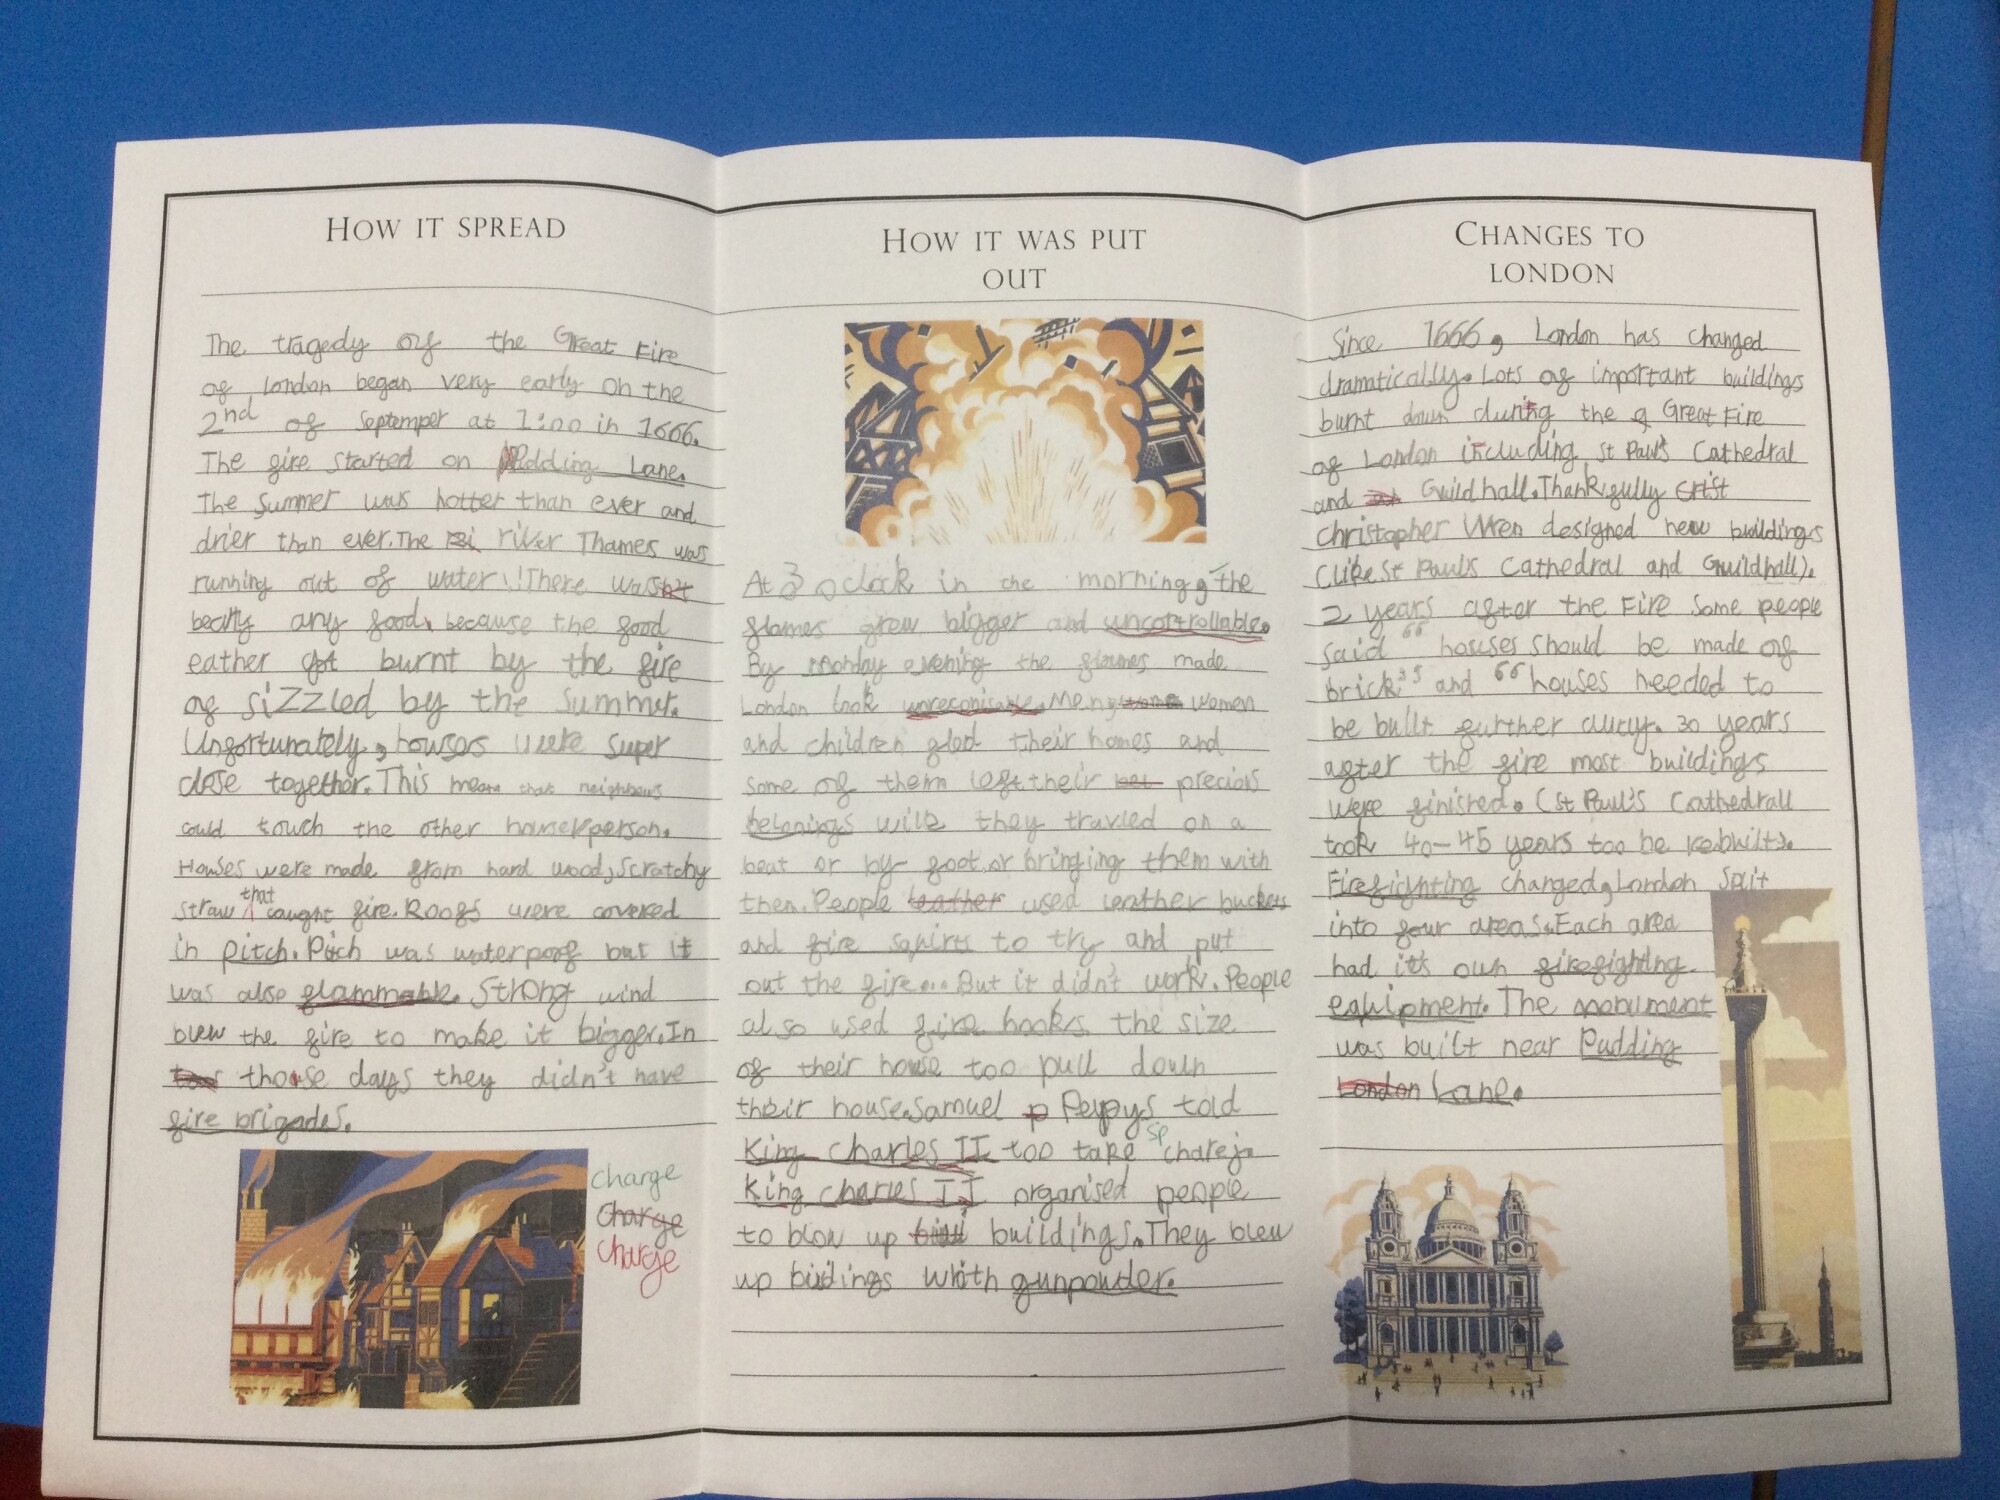 HOW IT SPREAD
The tragedy of the Great Fire
of london began very early on the
2nd of Septemper at 1:00 in 1666.
The fire started on Pudding Lane.
The Summer was hotter than ever and
drier than ever. The river Thames was
running out of water! There was
any food, because the food
eather got burnt by the fire
of sizzled by the summer.
Unfortunately, houses were super
close together. This means that neighbours
could touch the other house/person.
Houses were made from hard wood, scratchy
straw that caught fire. Roofs were covered
in pitch. Pitch was waterproof but it
was also flammable. Strong wind
blew the fire to make it bigger. In
those days they didn't have
fire brigades.
charge
charge
charge
HOW IT WAS PUT
OUT
At 3 o clock in the morning, the
flames grew bigger and uncortrollable.
By monday evening the flames made
London look unreconisable. Men, women
and children fled their homes and
some of them left their precios
belonings wile they travled on a
boat or by foot. or bringing them with
them. People used leather buckets
and fire sqirts to try and put
out the fire... But it didn't work. People
also used fire hooks the size
of their house too pull down
their house. Samuel Pepys told
sp
King Charles II too take charej.
King Charles II organised people
to blow up buildings. They blew
up buidings with gunpowder.
CHANGES TO
LONDON
Since 1666, London has changed
dramatically. Lots of important buildings
burnt down during the Great Fire
of London including St Paul's Cathedral
and Guildhall. Thankfully
Christopher Wren designed new buildings
(like St Paul's Cathedral and Guildhall).
2 years after the Fire some people
said "houses should be made of
brick" and "houses needed to
be built further away. 30 years
after the fire most buildings
were finished. (St Paul's Cathedrall
took 40-45 years too be rebuilt).
Firefighting changed, London split
into four areas. Each area
had it's own firefighting
equipment. The monument
was built near Pudding
London Lane.